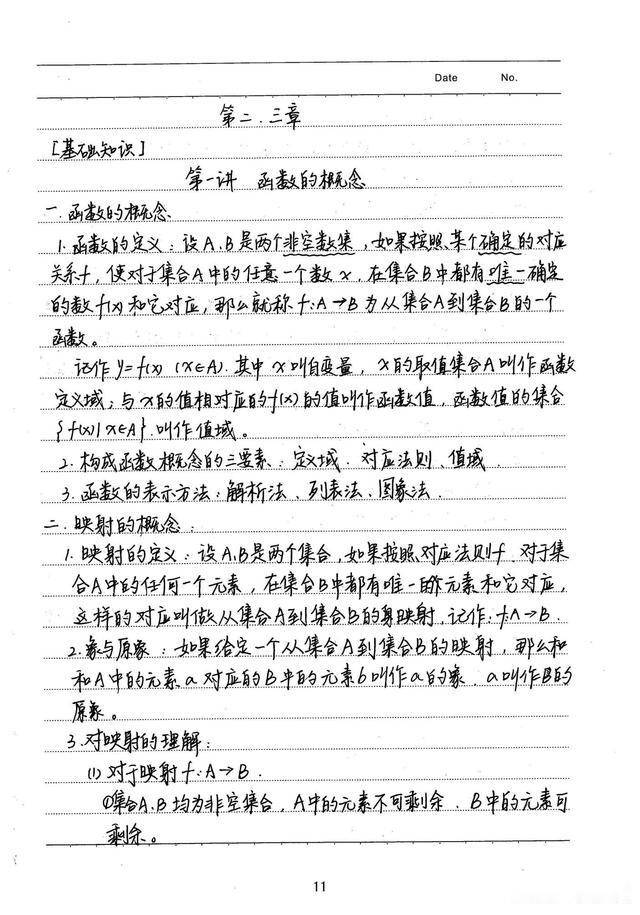 Date No.
第二.三章
[基础知识]
第一讲 函数的概念
一.函数的概念
1.函数的定义:设A.B是两个非空数集,如果按照某个确定的对应
关系f,使对于集合A中的任意一个数x,在集合B中都有唯一确定
的数f(x)和它对应,那么就称f:A→B为从集合A到集合B的一个
函数。
记作y=f(x) (x∈A).其中x叫自变量,x的取值集合A叫作函数
定义域;与x的值相对应的f(x)的值叫作函数值,函数值的集合
{f(x)|x∈A}.叫作值域。
2.构成函数概念的三要素:定义域.对应法则.值域
3.函数的表示方法:解析法、列表法、图象法.
二.映射的概念:
1.映射的定义:设A.B是两个集合,如果按照对应法则f.对于集
合A中的任何一个元素,在集合B中都有唯一的元素和它对应,
这样的对应叫做从集合A到集合B的映射,记作:f:A→B.
2.象与原象:如果给定一个从集合A到集合B的映射,那么和
和A中的元素a对应的B中的元素b叫作a的象.a叫作B的
原象。
3.对映射的理解:
(1)对于映射f:A→B.
①集合A.B均为非空集合,A中的元素不可剩余.B中的元素可
剩余。
11